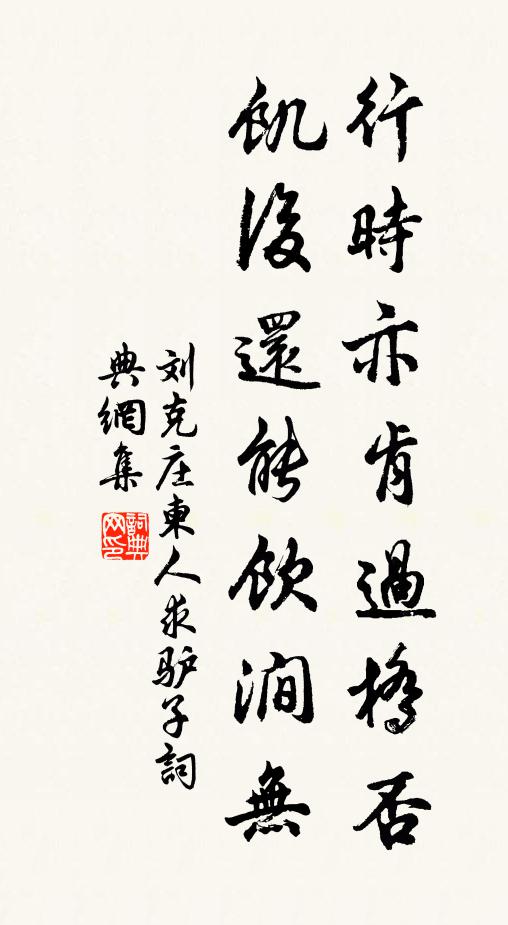 行時亦肯過橋否
飢後還能飲澗無
刘克庄東人求驴子詞
典網集
詞典网印